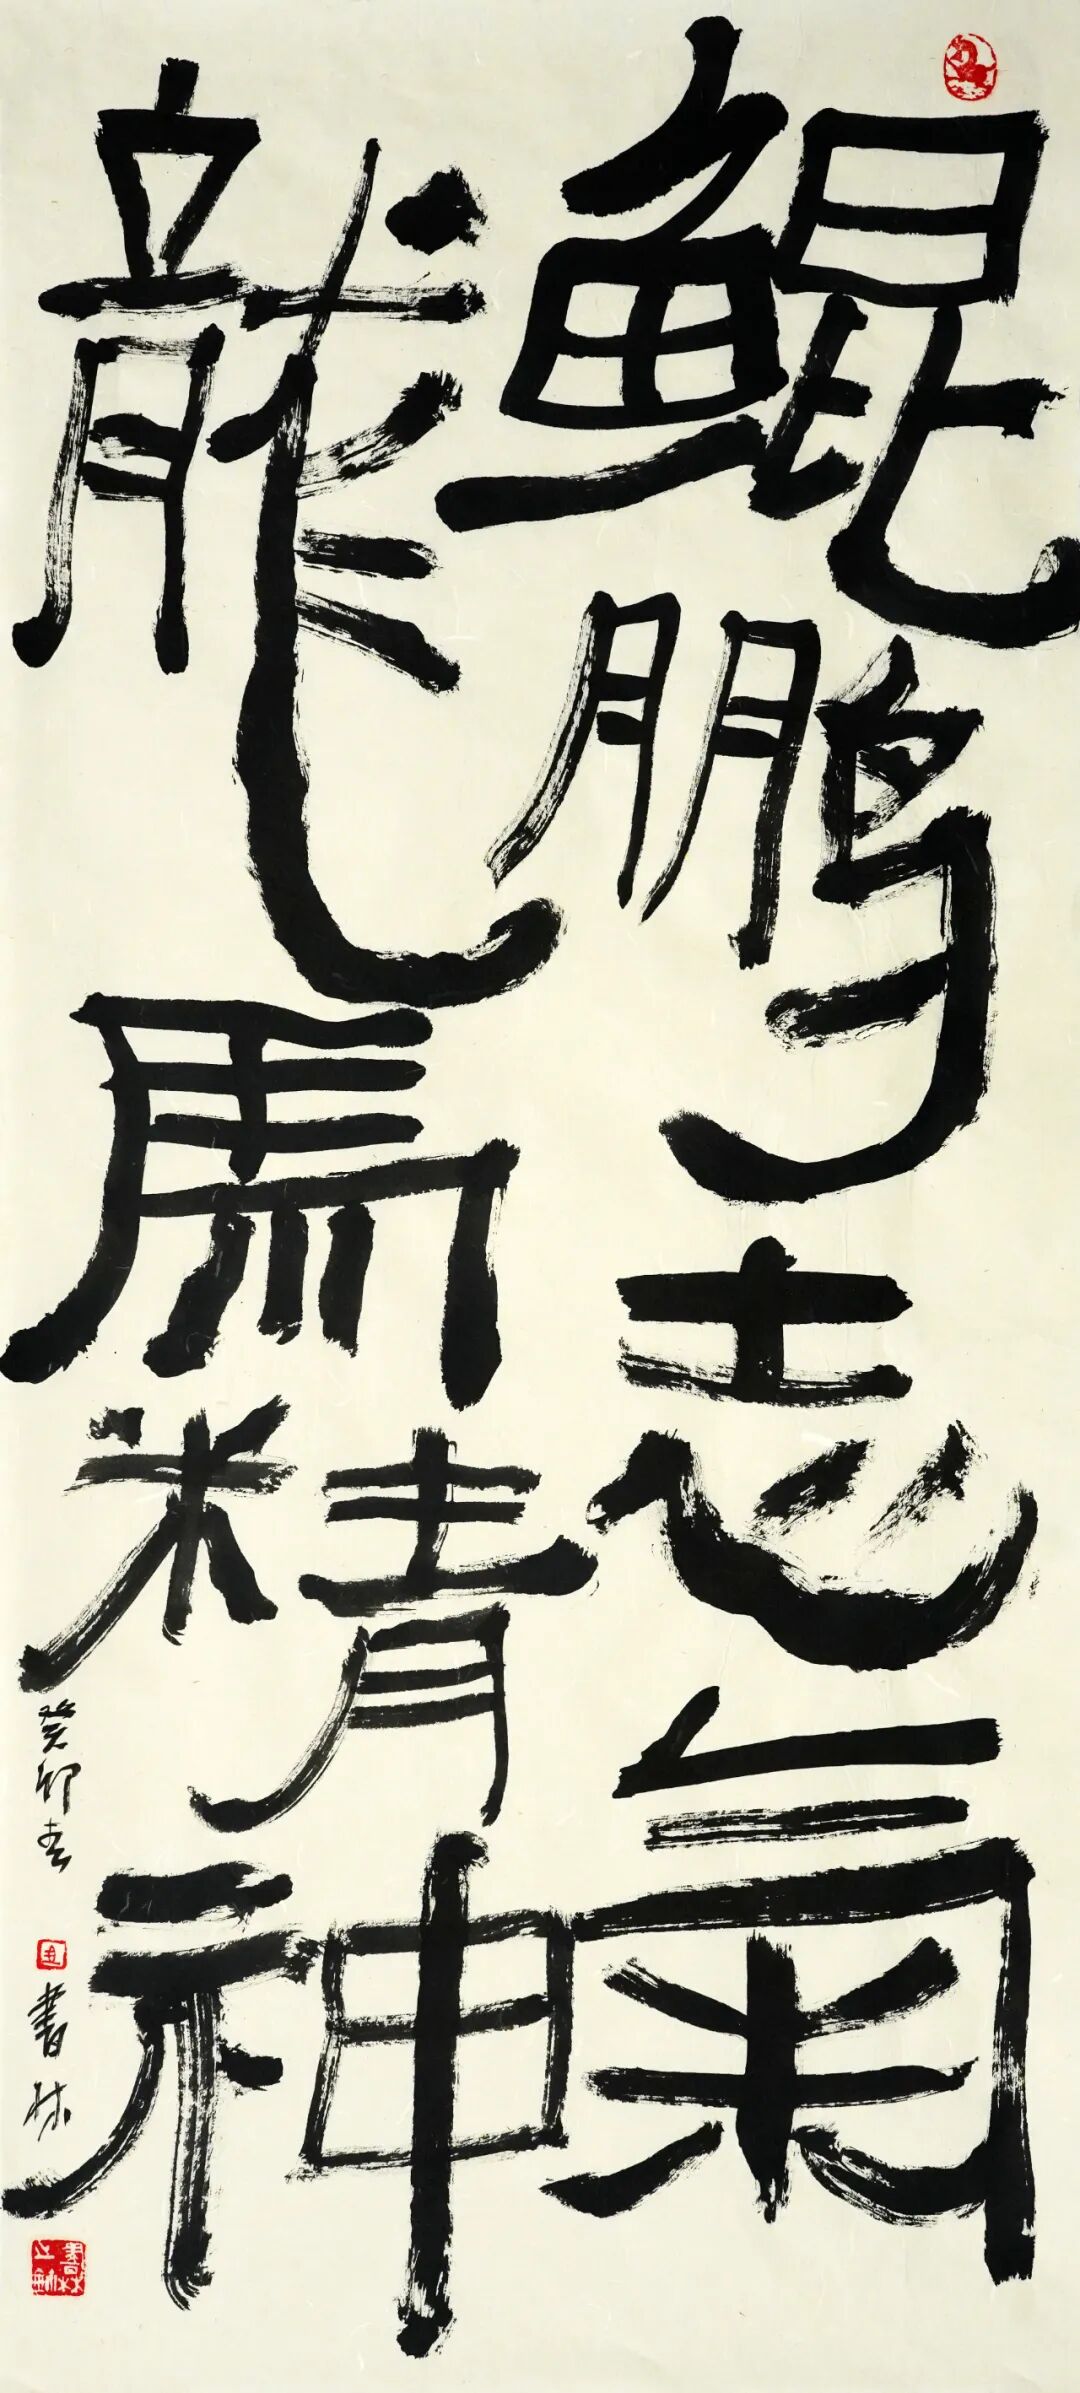 鯤鵬志氣
龍馬精神
癸卯春
書林